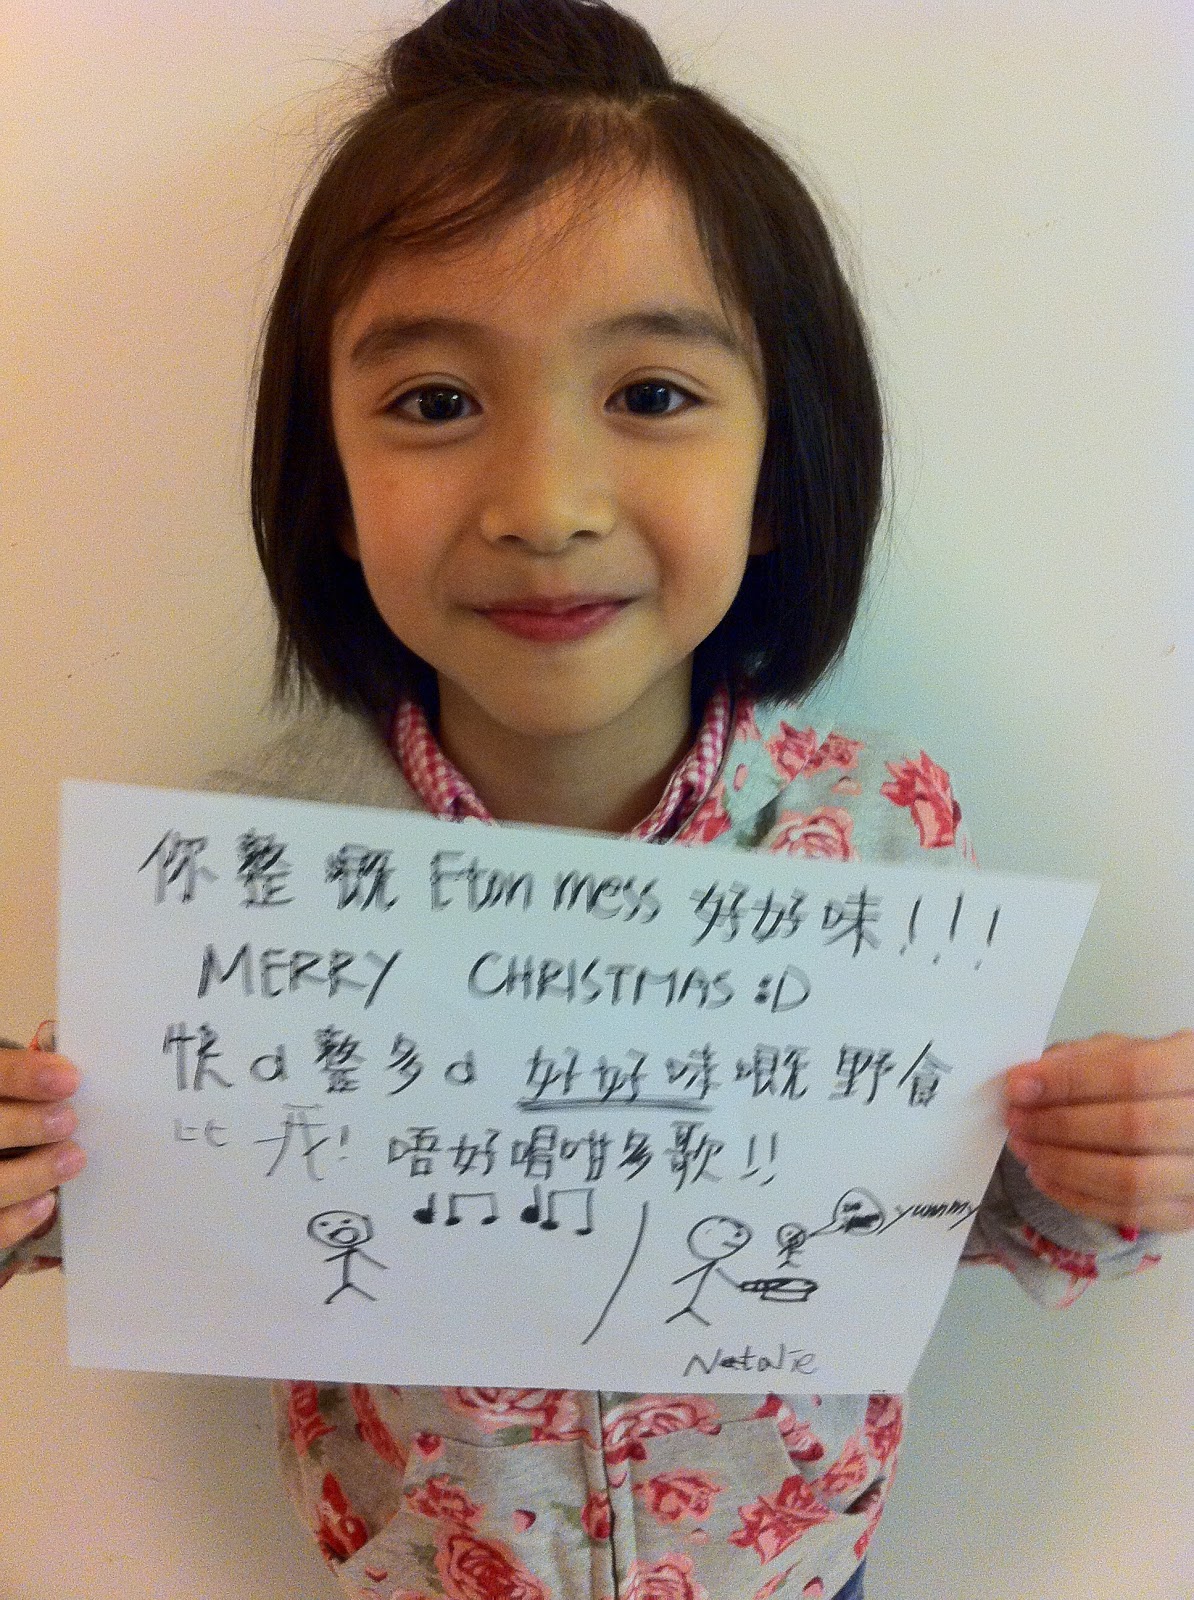 你整嘅 Eton mess 好好味!!!
MERRY CHRISTMAS :D
快d整多d 好好味嘅野食
比我! 唔好唱咁多歌!!
yummy
Natalie